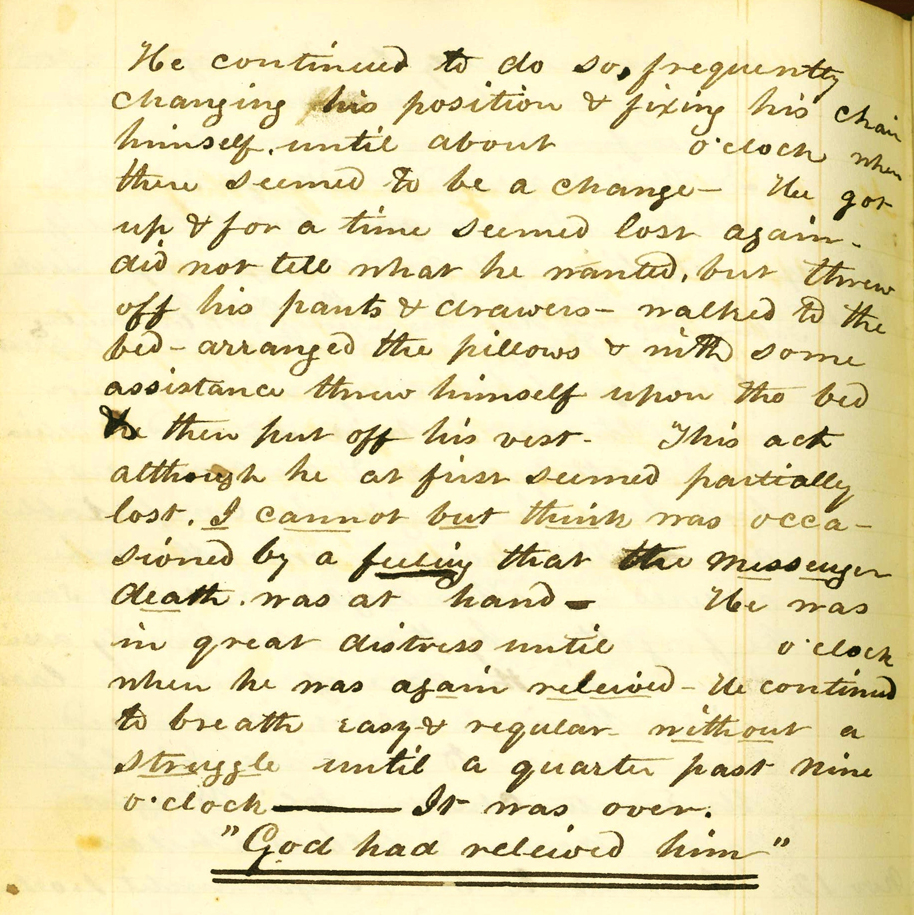 He continued to do so, frequently
changing his position & fixing his chair
himself, until about o'clock when
there seemed to be a change - He got
up & for a time seemed lost again -
did not tell what he wanted, but threw
off his pants & drawers - walked to the
bed - arranged the pillows & with some
assistance threw himself upon the bed
& then put off his vest - This act
although he at first seemed partially
lost, I cannot but think was occa-
sioned by a feeling that the messenger
death, was at hand - He was
in great distress until o'clock
when he was again releived - He continued
to breath easy & regular without a
struggle until a quarter past nine
o'clock — It was over.
"God had releived him"